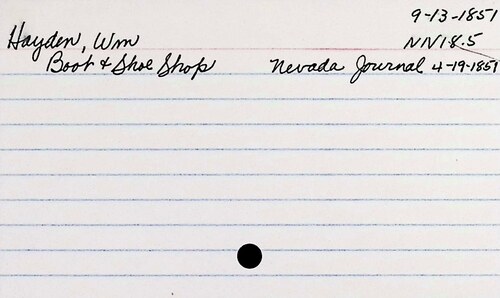 9-13-1851
Hayden, Wm NN18.5
Boot & Shoe Shop Nevada Journal 4-19-1851